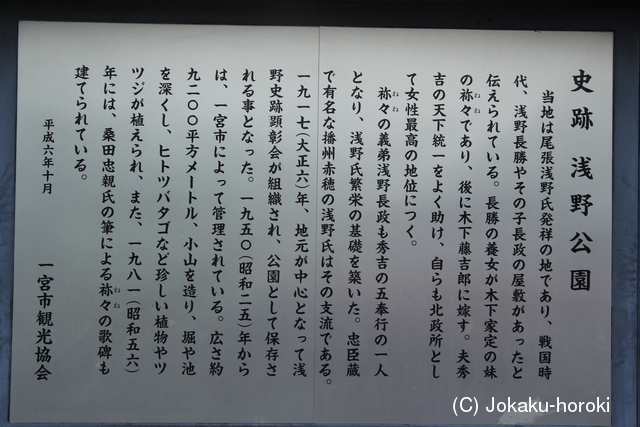 史跡 浅野公園
当地は尾張浅野氏発祥の地であり、戦国時
代、浅野長勝やその子長政の屋敷があったと
伝えられている。長勝の養女が木下家定の妹
の祢々(ねね)であり、後に木下藤吉郎に嫁す。夫秀
吉の天下統一をよく助け、自らも北政所とし
て女性最高の地位につく。
祢々(ねね)の義弟浅野長政も秀吉の五奉行の一人
となり、浅野氏繁栄の基礎を築いた。忠臣蔵
で有名な播州赤穂の浅野氏はその支流である。
一九一七(大正六)年、地元が中心となって浅
野史跡顕彰会が組織され、公園として保存さ
れる事となった。一九五〇(昭和二五)年から
は、一宮市によって管理されている。広さ約
九二〇〇平方メートル、小山を造り、堀や池
を深くし、ヒトツバタゴなど珍しい植物やツ
ツジが植えられ、また、一九八一(昭和五六)
年には、桑田忠親氏の筆による祢々(ねね)の歌碑も
建てられている。
平成六年十月
一宮市観光協会
(C) Jokaku-horoki